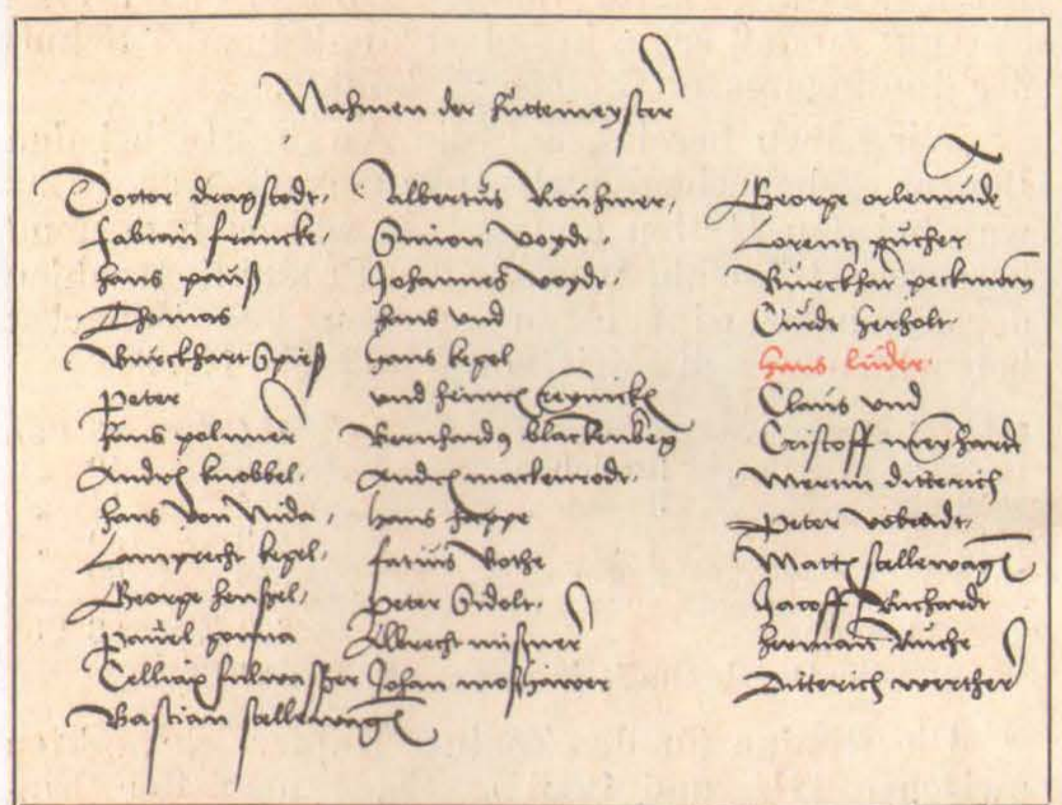 Nahmen der huttemeyster
Doctor dragstedt,
Fabian francke,
hans pauß
Thomas
Burckhart Spieß
Peter
hans polner
Andres knobbel.
hans von Nida,
Lamprecht kegel.
George henßel,
Pauel
fulwasser
Bastian stellewagen
Albertus
Simon voydt.
Johannes voydt.
hans vnd
hans kegel
vnd heinrich reynicke
Bernhardus blackenberg
Andres mackenrodt.
hans
Rothe
Peter Sidolt.
Albrecht mißner
Johan moßhawer
George orlemunde
Lorentz
Burckhart peckman
Curdt herholt.
hans luder.
Claus vnd
Cristoff meyhardt
Mertin ditterich
Peter
Matthes stellewagen
Jacoff Richardt
herman Ruche
Ditterich werther